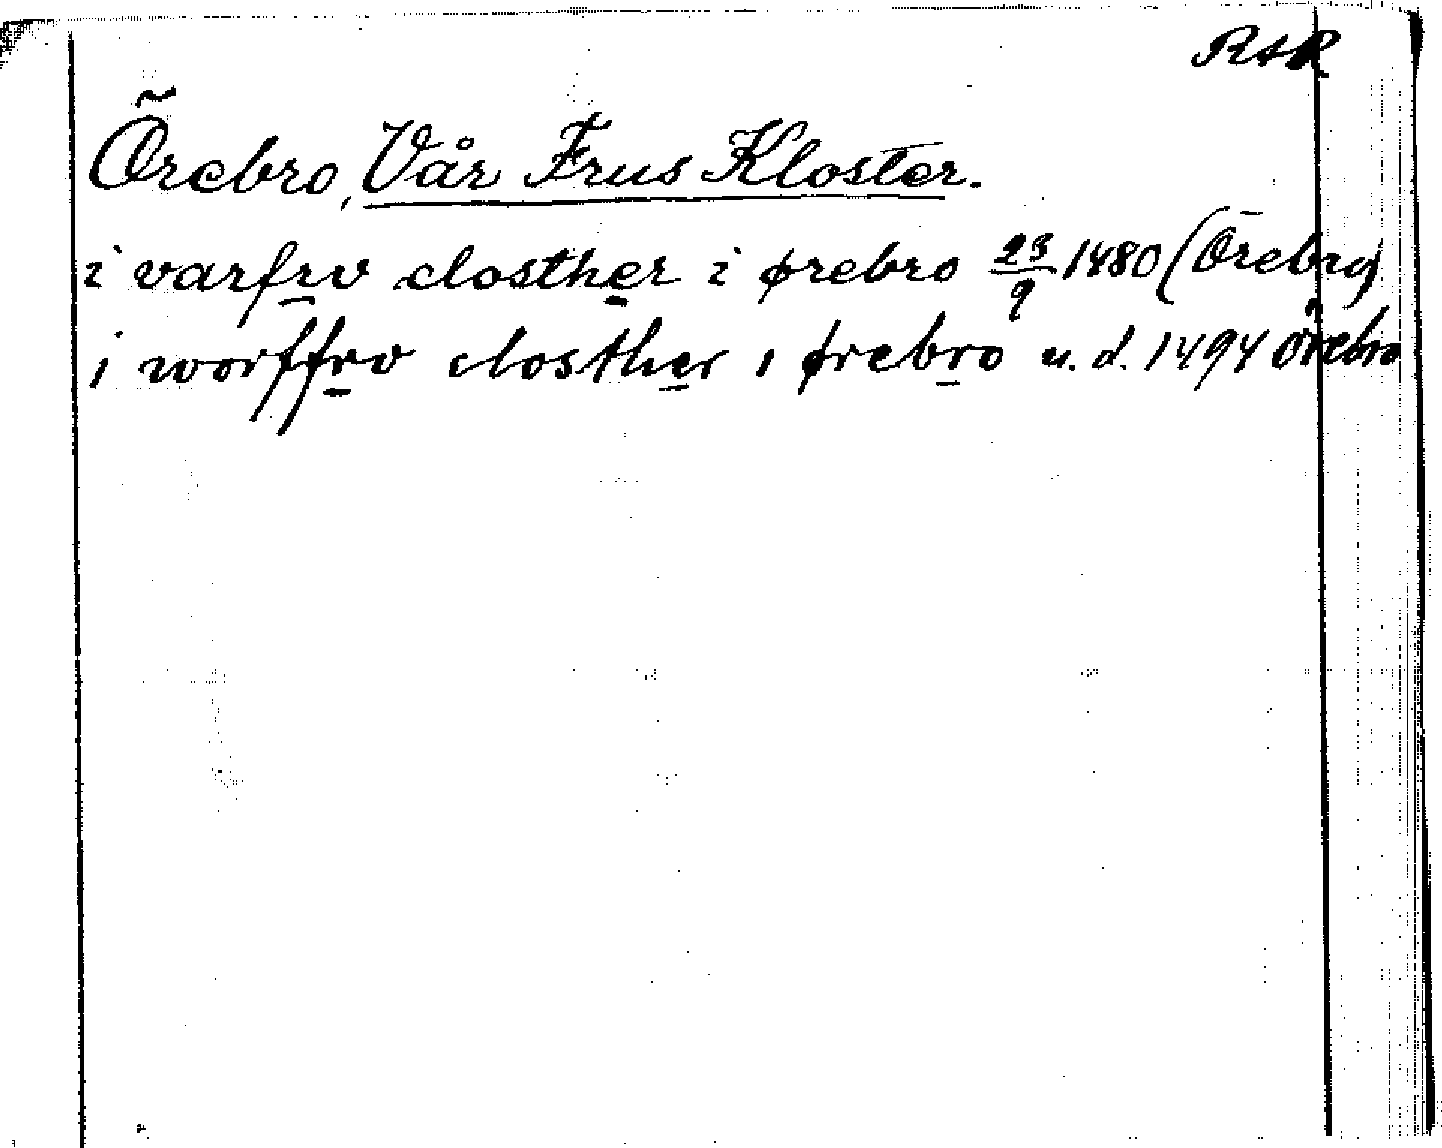 RAR
Örebro, Vår Frus Kloster.
i varfrv closther i ørebro 23/9 1480 (Örebro)
i worffrv closther i ørebro u. d. 1494 Örebro